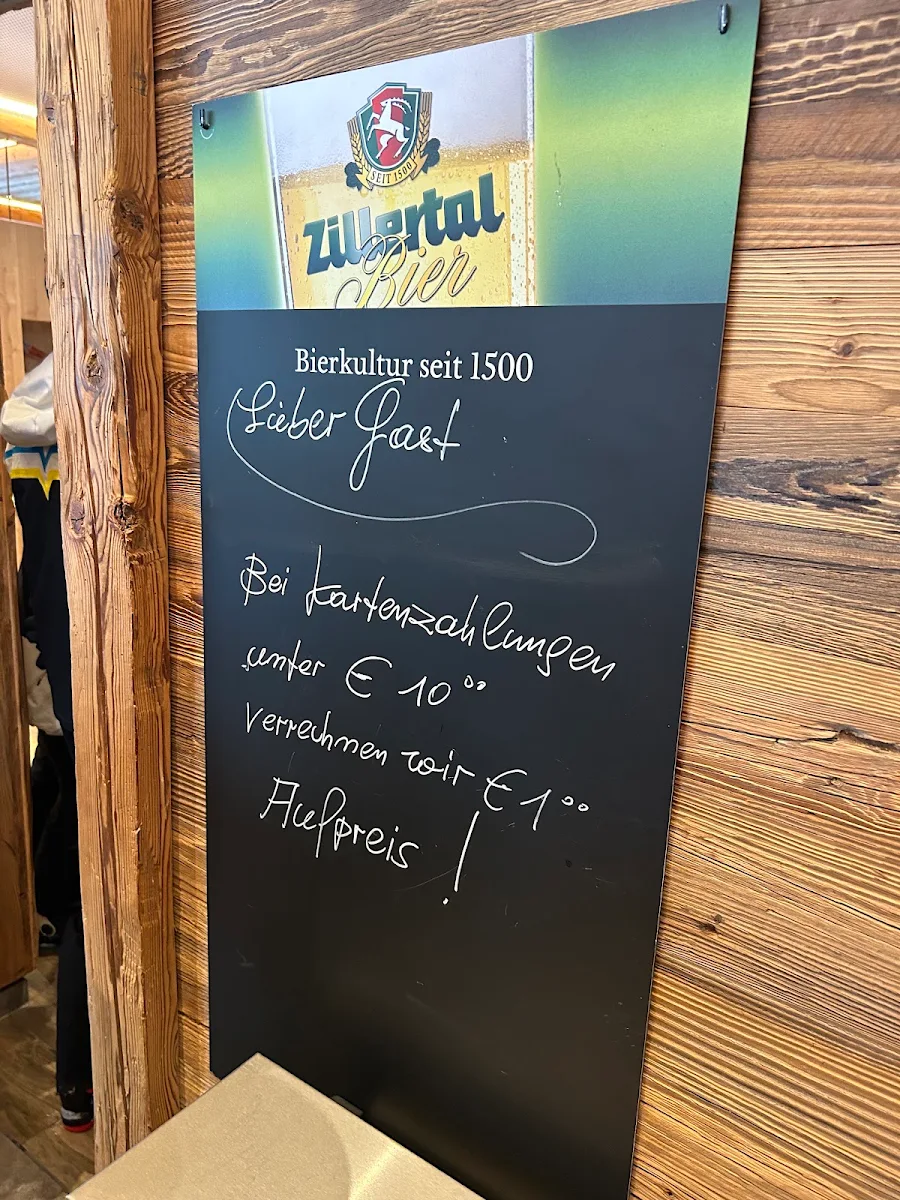 SEIT 1500
Zillertal
Bier
Bierkultur seit 1500
Lieber Gast
Bei Kartenzahlungen
unter € 10°°
verrechnen wir € 1°°
Aufpreis !